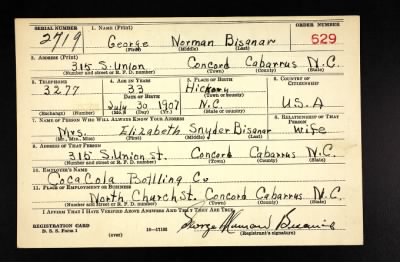 SERIAL NUMBER 1. NAME (Print) ORDER NUMBER
2719 George Norman Bisanar 529
(First) (Middle) (Last)
2. ADDRESS (Print)
315 S. Union Concord Cabarrus N.C.
(Number and street or R. F. D. number) (Town) (County) (State)
3. TELEPHONE 4. AGE IN YEARS 5. PLACE OF BIRTH 6. COUNTRY OF CITIZENSHIP
3277 33 Hickory
(Town or county)
DATE OF BIRTH
July 30 1907 N.C. U.S.A
(Exchange) (Number) (Mo.) (Day) (Yr.) (State or country)
7. NAME OF PERSON WHO WILL ALWAYS KNOW YOUR ADDRESS 8. RELATIONSHIP OF THAT PERSON
Mrs. Elizabeth Snyder Bisanar wife
(Mr., Mrs., Miss) (First) (Middle) (Last)
9. ADDRESS OF THAT PERSON
315 S. Union st. Concord Cabarrus N.C.
(Number and street or R. F. D. number) (Town) (County) (State)
10. EMPLOYER'S NAME
Coca Cola Bottling Co
11. PLACE OF EMPLOYMENT OR BUSINESS
North Church St. Concord Cabarrus N.C.
(Number and street or R. F. D. number) (Town) (County) (State)
I AFFIRM THAT I HAVE VERIFIED ABOVE ANSWERS AND THAT THEY ARE TRUE.
REGISTRATION CARD George Norman Bisanar
D. S. S. Form 1 (over) 16—17105 (Registrant's signature)